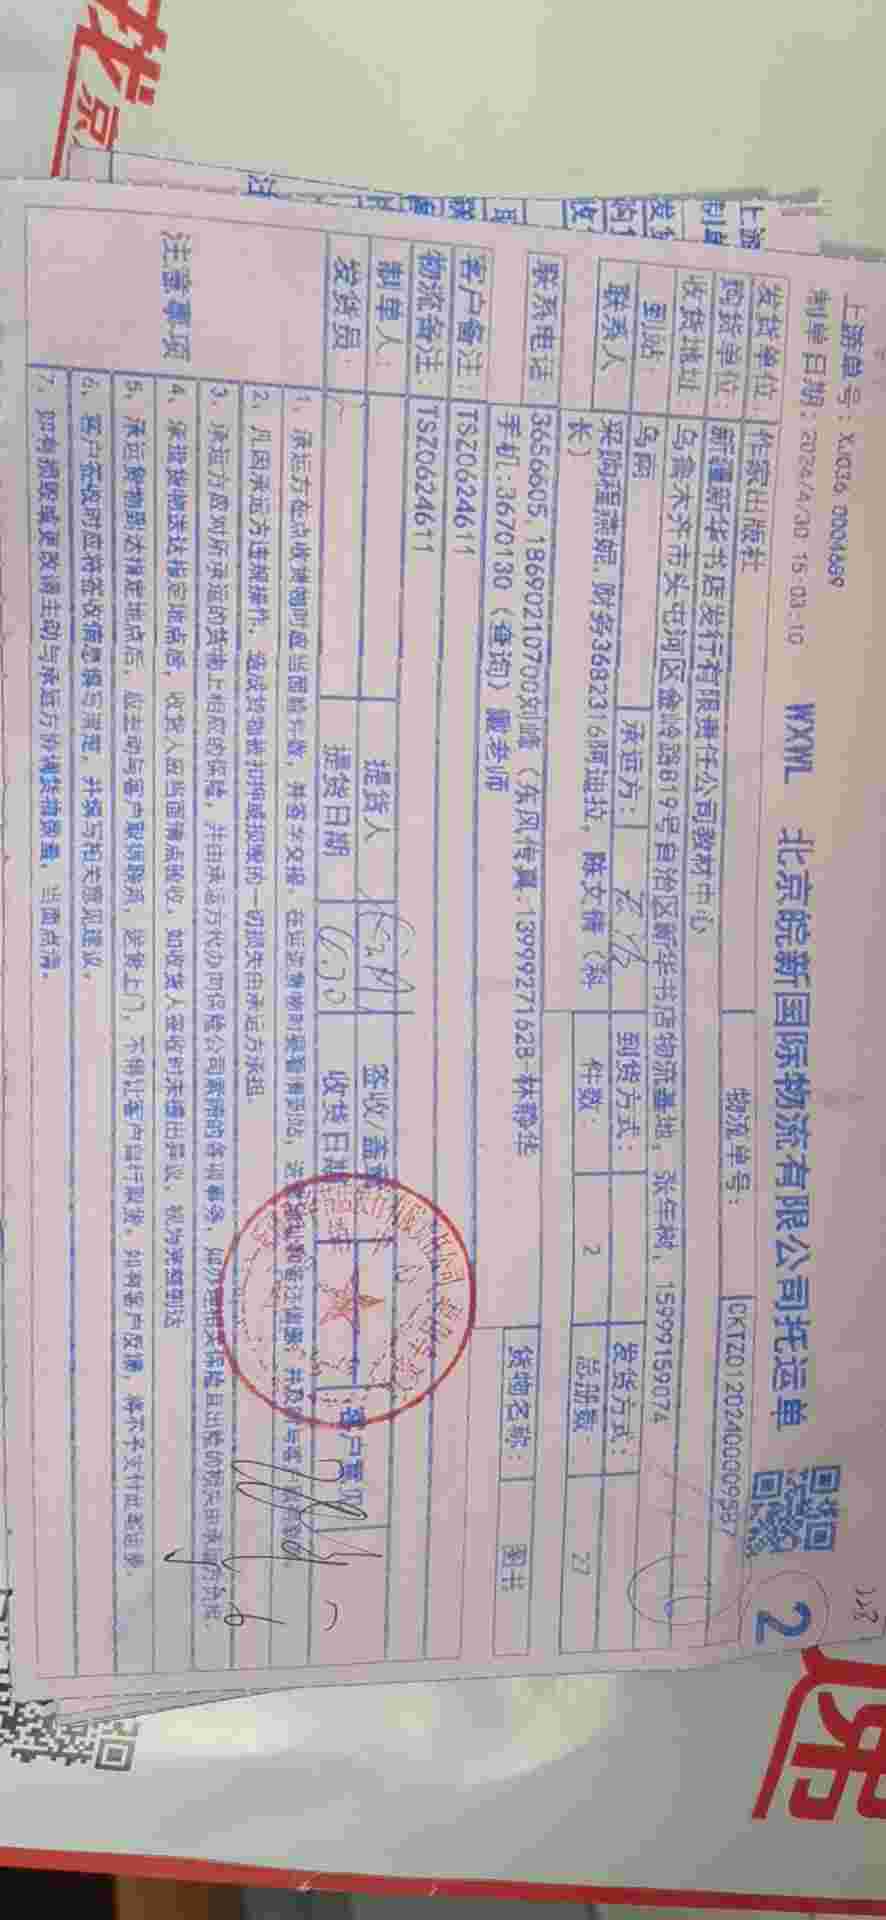 上游单号: XJ036 0004669
制单日期: 2024/4/30 15-03-10
WXWL 北京皖新国际物流有限公司托运单
2
发货单位: 作家出版社
物流单号: CKTZ01202400009587
购货单位: 新疆新华书店发行有限责任公司教材中心
收货地址: 乌鲁木齐市头屯河区金岭路819号自治区新华书店物流基地, 张午树, 15999159074
到站: 乌南
承运方:
到货方式:
发货方式:
联系人 采购程燕妮, 财务3682316阿迪拉, 陈文倩(科长)
件数: 2
总册数: 27
联系电话: 3656605, 18690210700刘峰(东风传真-13999271628-林静华
手机:3670130(查询)戴老师
货物名称: 图书
客户备注: TSZ0624611
物流备注: TSZ0624611
制单人:
提货人
签收/盖章
客户意见
发货员:
提货日期 6.30
收货日期
注意事项
1、承运方在点收货物时应当面点件数, 并签字交接。在运货物时要看清到站、
2、凡因承运方违规操作, 造成货物被扣押或损毁的一切损失由承运方承担.
3、承运方应对所承运的货物上相应的保险, 并由承运方代办向保险公司索赔的各项事务,
4、承接货物送达指定地点后, 收货人应当面清点验收, 如收货人签收时未提出异议, 视为完整到达
5、承运货物到达指定地点后, 应主动与客户取得联系, 送货上门, 不得让客户自行取货, 如有客户反馈, 将不予支付此笔运费.
6、客户签收时应将签收信息填写清楚, 并填写相关意见建议.
7、如有损毁或更改请主动与承运方协调货物质量, 当面点清.